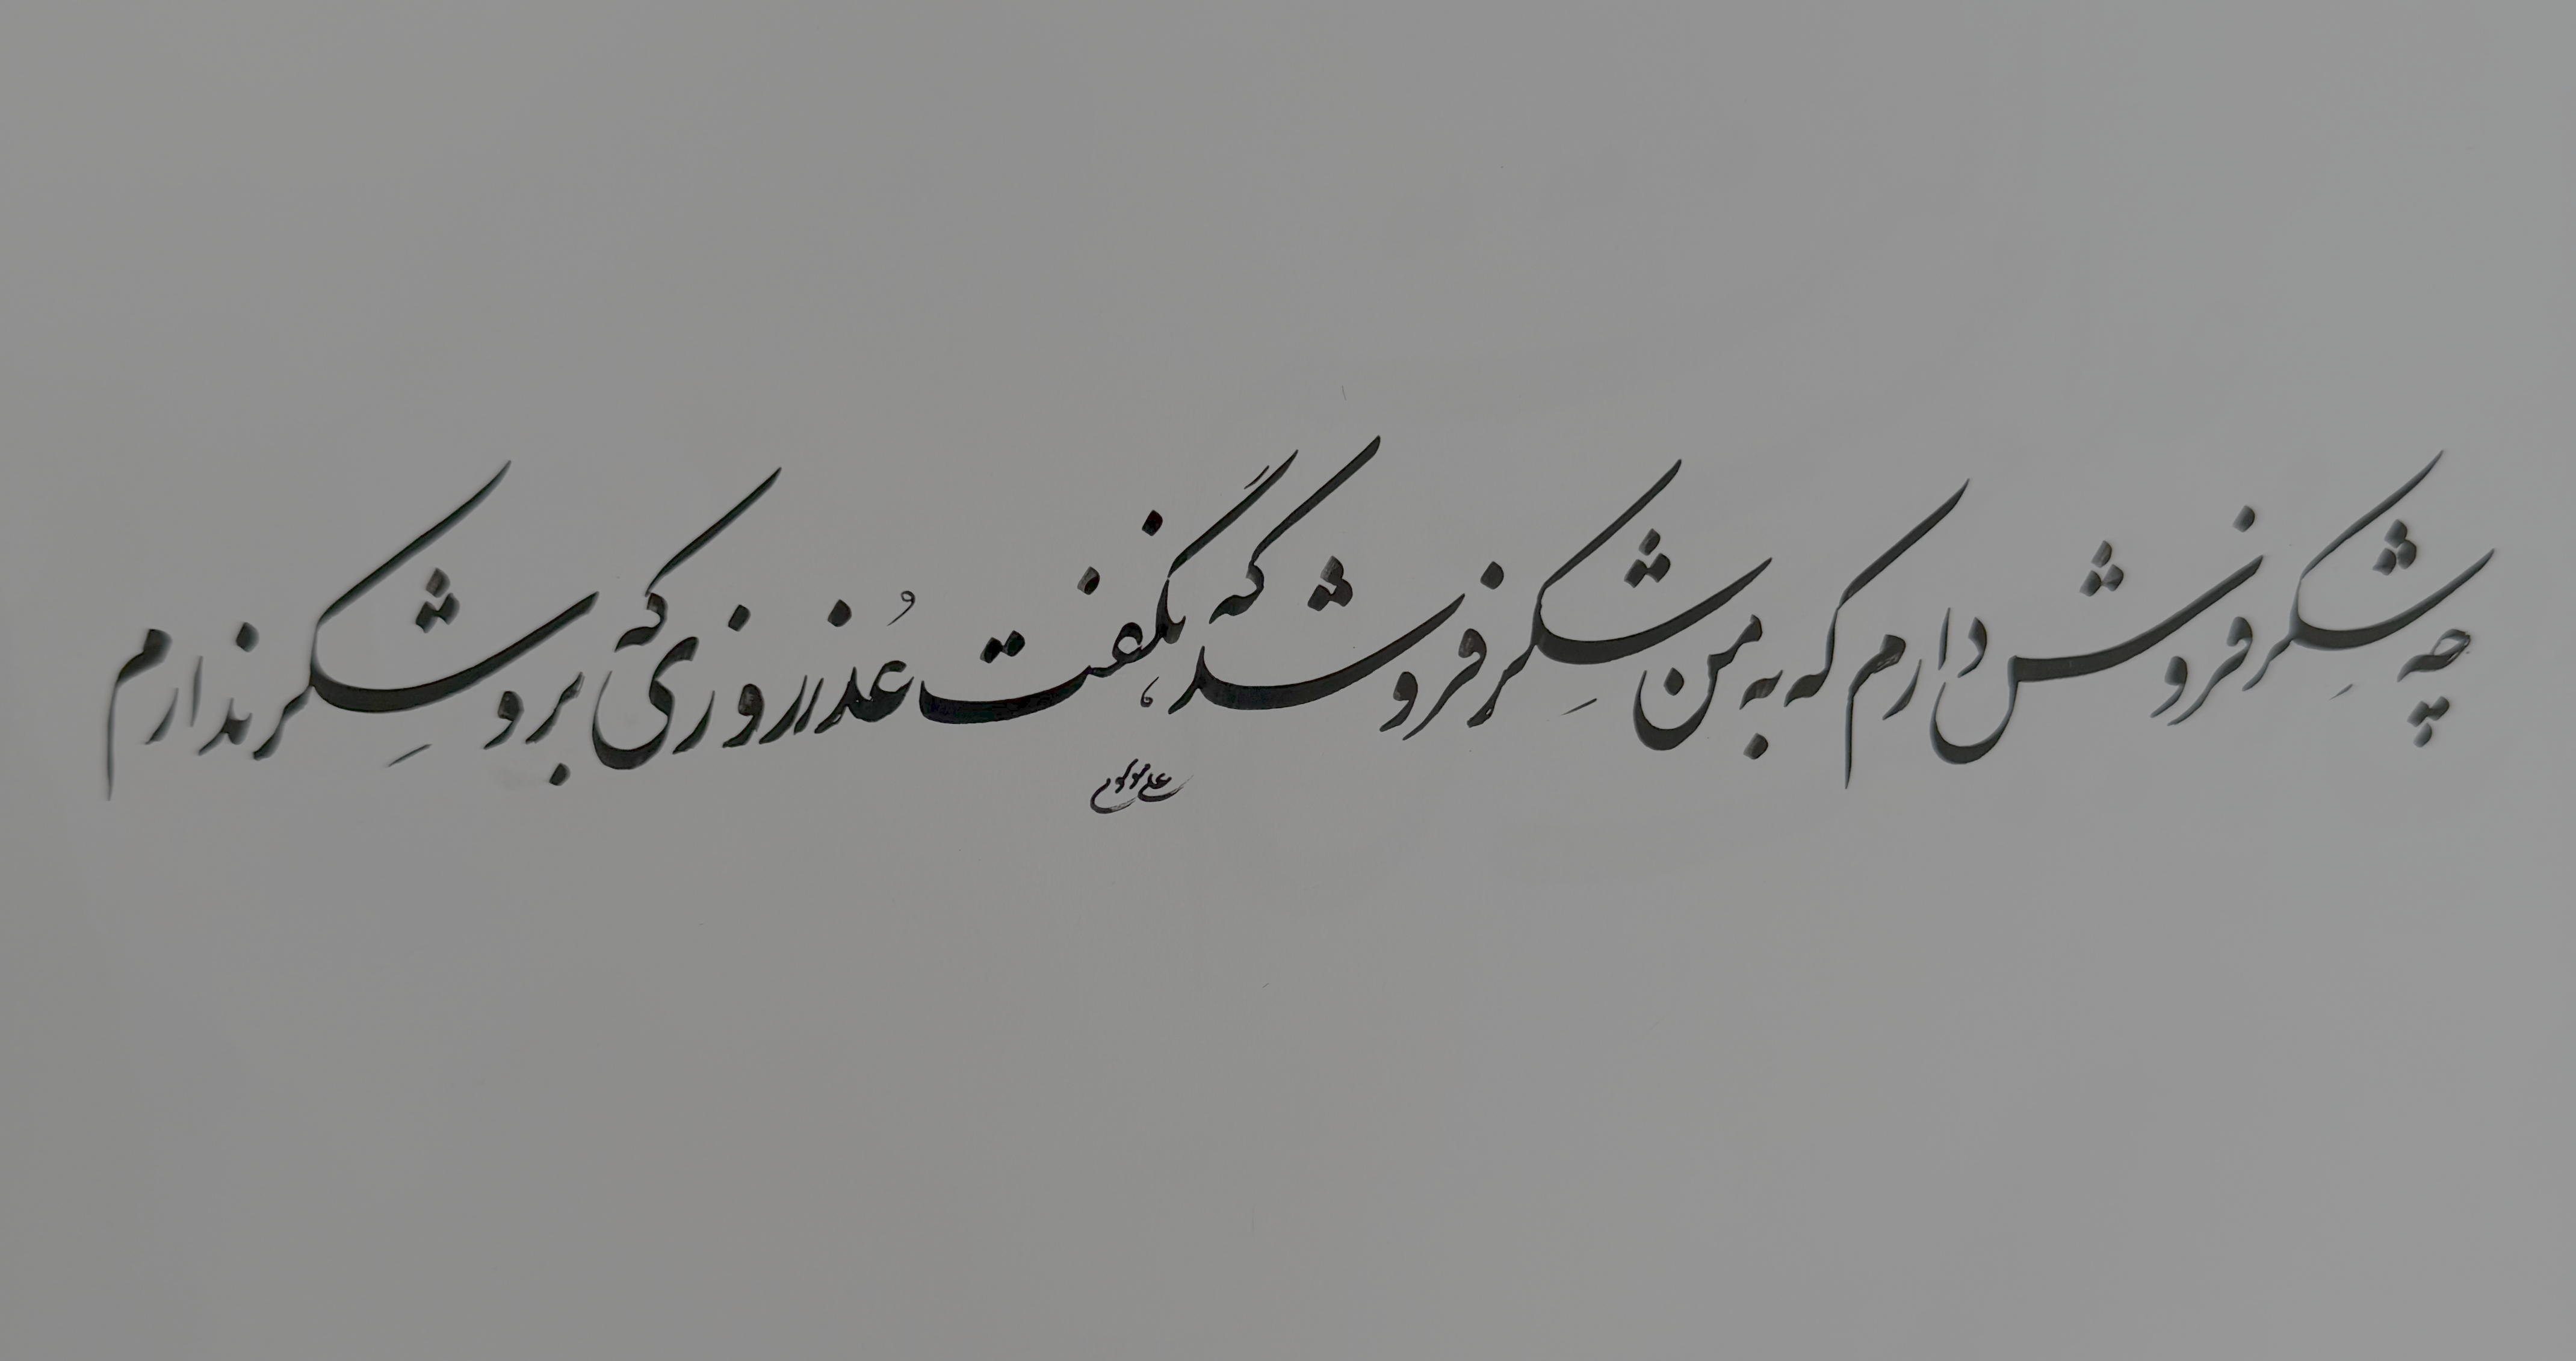 چه شِکر فروش دارم که به من شِکر فروشد، که نگفت عُذر روزی که برو شِکر ندارم
علی